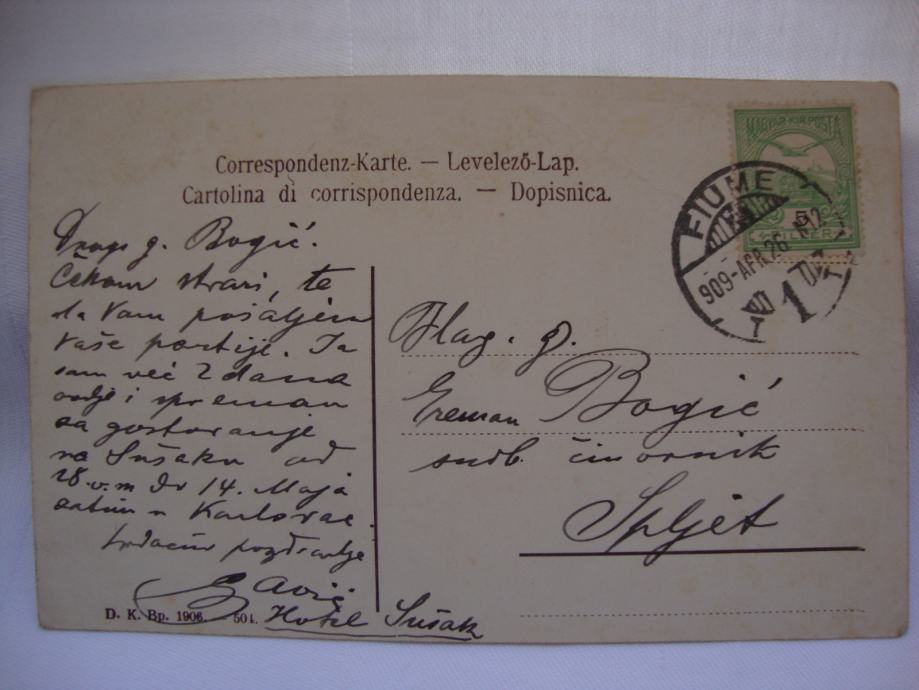 Correspondenz-Karte. — Levelező-Lap.
Cartolina di corrispondenza. — Dopisnica.
MAGYAR·KIR·POSTA
5
FILLÉR
FIUME
909-APR 26
1
Drage g. Bogić.
Čekam stvari, te
da Vam pošaljem
Vaše partije. Ja
sam već 2 dana
ovdje i spreman
za gostovanje
na Sušaku od
28. o. m do 14. Maja
zatim u Karlovac.
Srdačno pozdravlja
Hotel Sušak
g.
Bogić
sudb. činovnik
Spljet
D. K. Bp. 1906. 504.